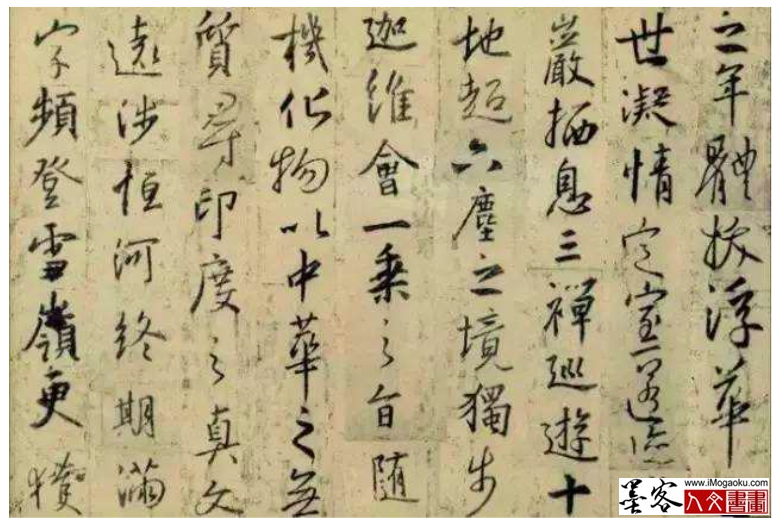 之年體拔浮華
世凝情定室匿跡
巖栖息三禪巡遊十
地超六塵之境獨步
迦維會一乘之旨隨
機化物以中華之無
質尋印度之真文
遠涉恒河終期滿
字頻登雪嶺更獲
墨客
www.iMogaoku.com
人文書畫